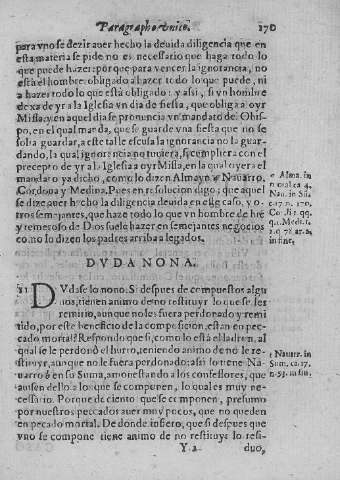 Paragrapho vnico. 170
para vno se dezir auer hecho la deuida diligencia que en
esta materia se pide no es necessario que haga todo lo
que puede hazer: porque para vencer la ignorancia, no
está el hombre obligado a hazer todo lo que puede, ni
a hazer todo lo que está obligado: y assi, si vn hombre
dexa de yr a la Iglesia vn dia de fiesta, que obliga a oyr
Missa, y en aquel dia se pronuncia vn mandato del Obis-
po, en el qual manda, que se guarde vna fiesta que no se
solia guardar, a este tal le escusa la ignorancia no la guar-
dando, la qual ignorancia no tuuiera, si cumpliera con el
precepto de yr a la Iglesia a oyr Missa, en la qual oyera el
mandato ya dicho, como lo dizen Almayn e Nauarro,
Cordoua y Medina. Pues en resolucion digo; que aquel
se dize auer hecho la diligencia deuida en este caso, y o-
tros semejantes, que haze todo lo que vn hombre de bié
y temeroso de Dios suele hazer en semejantes negocios
como lo dizen los padres arriba alegados.
e Alma. in
moral ca 4.
Nau. in Sū.
c. 17 n. 170.
Cordi. e qq.
q. Medi. 1.
2. q 78 ar. 2.
in fine.
DVDA NONA.
21 DVdase lo nono. Si despues de compuestos algu
nos, tienen animo de no restituyr lo que se les
remitio, aunque no les fuera perdonado y remi
tido, por este beneficio de la composicion, están en pe-
cado mortal? Respondo que si, como lo está el ladron, al
qual se le perdonó el hurto, teniendo animo de no le re-
stituyr, aunque no le fuera perdonado: assi lo tiene Na-
uarro f en su Suma, amonestando a los confessores, que
auisen dello a los que se componen, lo quales muy ne-
cessario. Porque de ciento que se componen, presumo
por nuestros pecados auer muy pocos, que no queden
en pecado mortal. De donde infiero, que si despues que
vno se compone tiene animo de no restituyr lo resi-
f Nauar. in
Sum. ca. 17.
n. 59. in fin.
Y 2 duo,